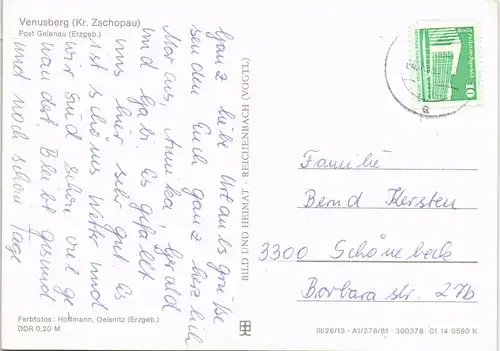 Venusberg (Kr. Zschopau)
Post Gelenau (Erzgeb.)
Ganz liebe Urlaubsgrüße
senden Euch ganz herzlich
Marcus, Annika, Gerald
und Gabi. Es gefällt
uns hier sehr gut. Es
ist schönes Wetter und
wir sind schon viel ge-
wandert. Bleibt gesund
und noch schöne Tage
Farbfotos: Hoffmann, Oelsnitz (Erzgeb.)
DDR 0,20 M
BILD UND HEIMAT · REICHENBACH (VOGTL)
10
Familie
Bernd Kersten
3300 Schönebeck
Barbara str. 27b
III/26/13 · A1/376/81 300378 01 14 0590 K